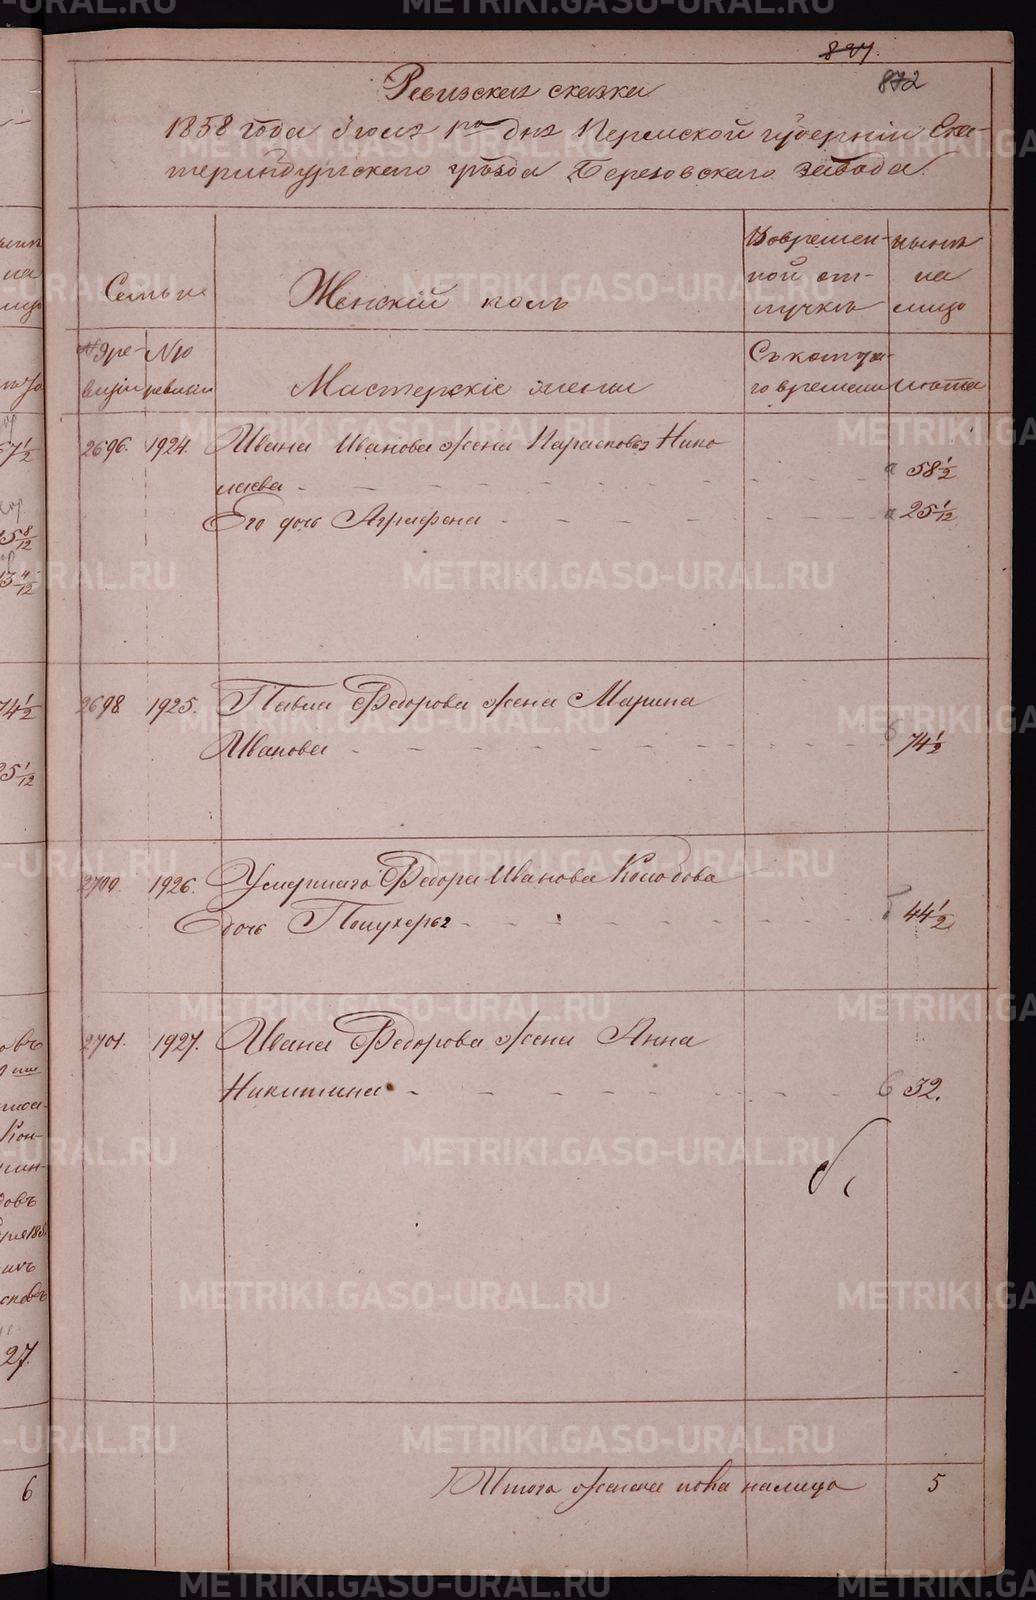 827.
872
Ревизская сказка
1858 года Июля 1го дня Пермской губернии Ека-
теринбургскаго уѣзда Березовскаго завода.
Семьи
Женскій полъ
Во времен-
ной от-
лучкѣ
нынѣ
на
лицо
№ 9 ре-
визіи
№ 10
ревизіи
Мастерскіе жены
Съ котора-
го времени
лѣта
2696. 1924. Ивана Иванова жена Парасковья Нико
лаева - 58 1/2
Его дочь Аграфена - 25 1/12
2698 1925. Павла Федорова жена Марина
Иванова - 74 1/2
2700. 1926. Умершаго Федора Иванова Колобова
дочь Полухерья - 44 1/2
2701. 1927. Ивана Федорова жена Анна
Никитина - 32.
Итого женска пола на лицо 5
6
27.
METRIKI.GASO-URAL.RU